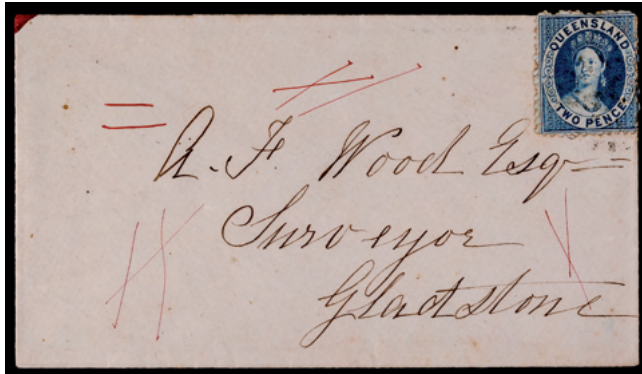 QUEENSLAND
TWO PENCE
A. F. Wood Esq
Surveyor
Gladstone